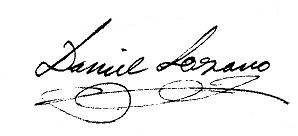 Daniel Lozano